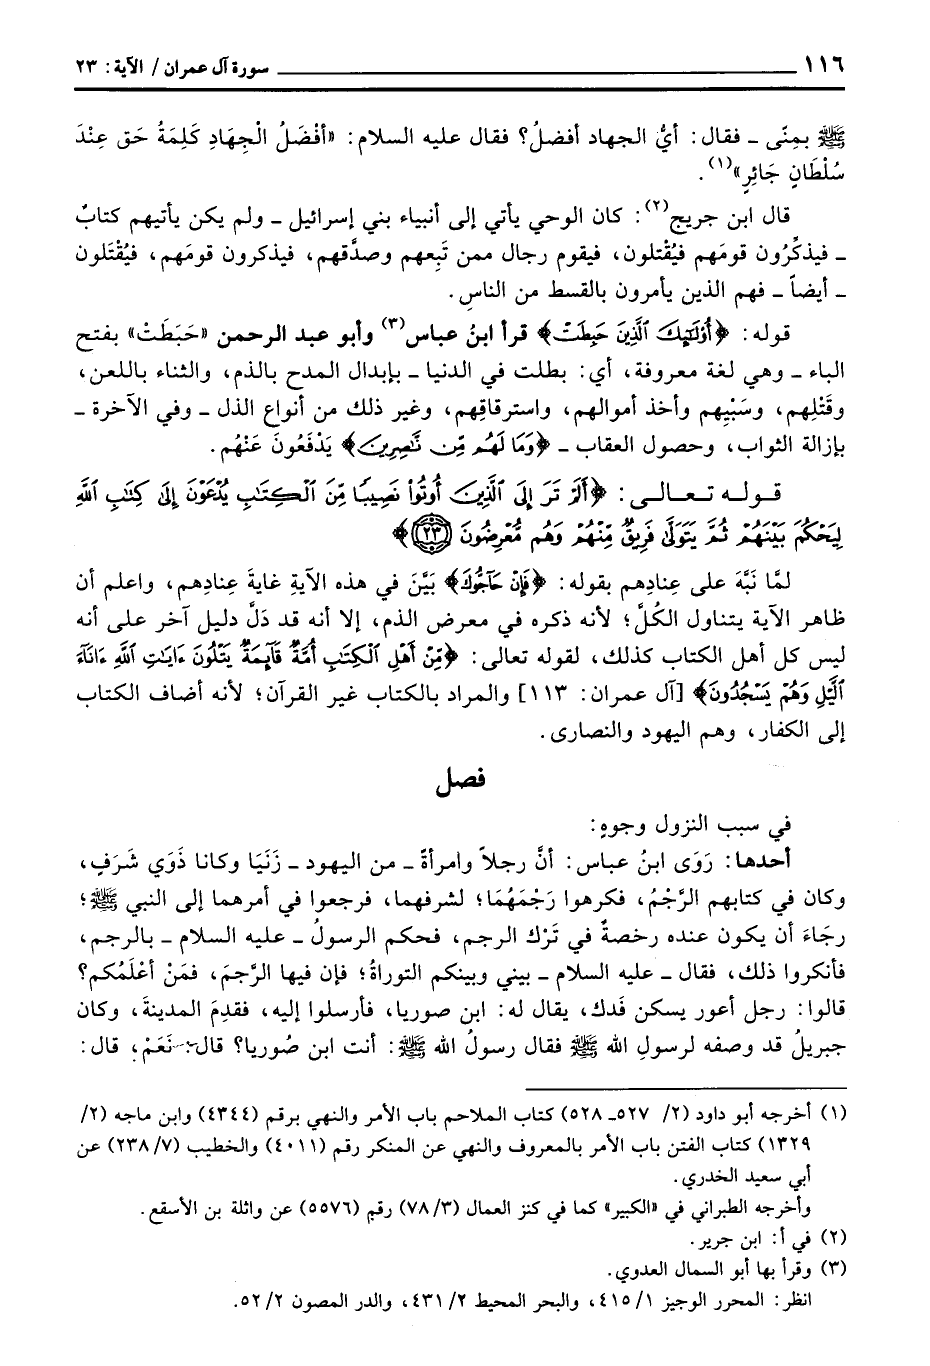 ١١٦ سورة آل عمران / الآية: ٢٣
ﷺ بمِنًى ـ فقال: أيُّ الجهاد أفضلُ؟ فقال عليه السلام: «أفْضَلُ الْجِهَادِ كَلِمَةُ حَق عِنْدَ
سُلْطَانٍ جَائِرٍ»(١).
قال ابن جريج(٢): كان الوحي يأتي إلى أنبياء بني إسرائيل ـ ولم يكن يأتيهم كتابٌ
ـ فيذكِّرُون قومَهم فيُقْتلون، فيقوم رجال ممن تَبِعهم وصدَّقهم، فيذكرون قومَهم، فيُقْتَلون
ـ أيضاً ـ فهم الذين يأمرون بالقسط من الناس.
قوله: ﴿أُوْلَٰٓئِكَ ٱلَّذِينَ حَبِطَتْ﴾ قرأ ابنُ عباس(٣) وأبو عبد الرحمن «حَبَطَتْ» بفتح
الباء ـ وهي لغة معروفة، أي: بطلت في الدنيا ـ بإبدال المدح بالذم، والثناء باللعن،
وقَتْلِهم، وسَبْيِهم وأخذ أموالهم، واسترقاقِهم، وغير ذلك من أنواع الذل ـ وفي الآخرة ـ
بإزالة الثواب، وحصول العقاب ـ ﴿وَمَا لَهُم مِّن نَّٰصِرِينَ﴾ يَدْفَعُونَ عَنْهُم.
قوله تعالى: ﴿أَلَمْ تَرَ إِلَى ٱلَّذِينَ أُوتُوا۟ نَصِيبًا مِّنَ ٱلْكِتَٰبِ يُدْعَوْنَ إِلَىٰ كِتَٰبِ ٱللَّهِ
لِيَحْكُمَ بَيْنَهُمْ ثُمَّ يَتَوَلَّىٰ فَرِيقٌ مِّنْهُمْ وَهُم مُّعْرِضُونَ ٢٣﴾
لمَّا نَبَّهَ على عِنادِهم بقوله: ﴿فَإِنْ حَآجُّوكَ﴾ بَيَّنَ في هذه الآيةِ غايةَ عِنادِهم، واعلم أن
ظاهر الآية يتناول الكُلَّ؛ لأنه ذكره في معرض الذم، إلا أنه قد دَلَّ دليل آخر على أنه
ليس كل أهل الكتاب كذلك، لقوله تعالى: ﴿مِّنْ أَهْلِ ٱلْكِتَٰبِ أُمَّةٌ قَآئِمَةٌ يَتْلُونَ ءَايَٰتِ ٱللَّهِ ءَانَآءَ
ٱلَّيْلِ وَهُمْ يَسْجُدُونَ﴾ [آل عمران: ١١٣] والمراد بالكتاب غير القرآن؛ لأنه أضاف الكتاب
إلى الكفار، وهم اليهود والنصارى.
فصل
في سبب النزول وجوهٍ:
أحدها: رَوَى ابنُ عباس: أنَّ رجلاً وامرأةً ـ من اليهود ـ زَنَيَا وكانا ذَوَي شَرَفٍ،
وكان في كتابهم الرَّجْمُ، فكرهوا رَجْمَهُمَا؛ لشرفهما، فرجعوا في أمرهما إلى النبي ﷺ؛
رجَاءَ أن يكون عنده رخصةٌ في تَرْك الرجم، فحكم الرسولُ ـ عليه السلام ـ بالرجم،
فأنكروا ذلك، فقال ـ عليه السلام ـ بيني وبينكم التوراةُ؛ فإن فيها الرَّجمَ، فمَنْ أعْلَمُكم؟
قالوا: رجل أعور يسكن فَدك، يقال له: ابن صوريا، فأرسلوا إليه، فقدِمَ المدينةَ، وكان
جبريلُ قد وصفه لرسولِ الله ﷺ فقال رسولُ الله ﷺ: أنت ابن صُوريا؟ قال: نَعَمْ، قال:
(١) أخرجه أبو داود (٢/ ٥٢٧ـ ٥٢٨) كتاب الملاحم باب الأمر والنهي برقم (٤٣٤٤) وابن ماجه (٢/
١٣٢٩) كتاب الفتن باب الأمر بالمعروف والنهي عن المنكر رقم (٤٠١١) والخطيب (٧/ ٢٣٨) عن
أبي سعيد الخدري.
وأخرجه الطبراني في «الكبير» كما في كنز العمال (٣/ ٧٨) رقم (٥٥٧٦) عن واثلة بن الأسقع.
(٢) في أ: ابن جرير.
(٣) وقرأ بها أبو السمال العدوي.
انظر: المحرر الوجيز ١/ ٤١٥، والبحر المحيط ٢/ ٤٣١، والدر المصون ٢/ ٥٢.